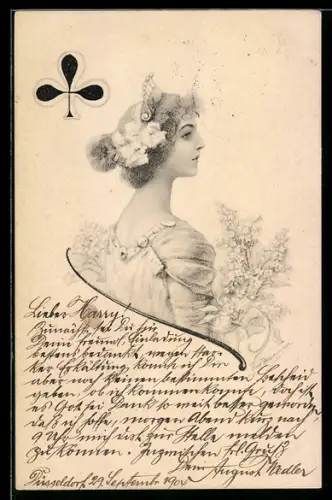 Lieber Harry!
Zunächst sei Du für
Deine freundl. Einladung
bestens bedankt, wegen star-
ker Erkältung, konnte ich Dir
aber noch keinen bestimmten Bescheid
geben, ob ich kommen könnte, doch ist
es Gott sei Dank so weit besser geworden
daß ich hoffe, morgen Abend kurz nach
9 Uhr mich auf zur Stelle melden
zu können. Inzwischen frl. Gruß
Dein August Adler
Düsseldorf 29 Septemb. 1900